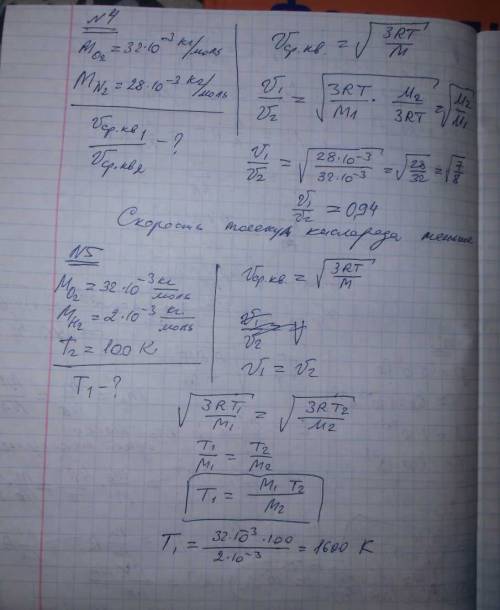 №4
M_{O₂} = 32·10⁻³ кг/моль
M_{N₂} = 28·10⁻³ кг/моль
v_{ср.кв1}/v_{ср.кв2} - ?
v_{ср.кв.} = √(3RT/M)
v₁/v₂ = √(3RT/M₁ · M₂/3RT) = √(M₂/M₁)
v₁/v₂ = √(28·10⁻³/32·10⁻³) = √(28/32) = √(7/8)
v₁/v₂ = 0,94
Скорость молекул кислорода меньше
№5
M_{O₂} = 32·10⁻³ кг/моль
M_{H₂} = 2·10⁻³ кг/моль
T₂ = 100 K
T₁ - ?
v_{ср.кв.} = √(3RT/M)
v₁/v₂ = √
v₁ = v₂
√(3RT₁/M₁) = √(3RT₂/M₂)
T₁/M₁ = T₂/M₂
T₁ = M₁T₂/M₂
T₁ = 32·10⁻³·100/2·10⁻³ = 1600 K